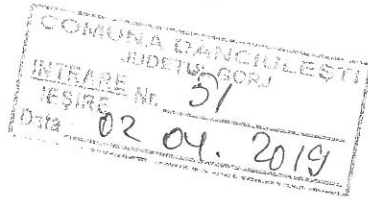 COMUNA DANCIULEȘTI
JUDEȚUL GORJ
INTRARE Nr. 51
IEȘIRE
Data 02 04. 2019